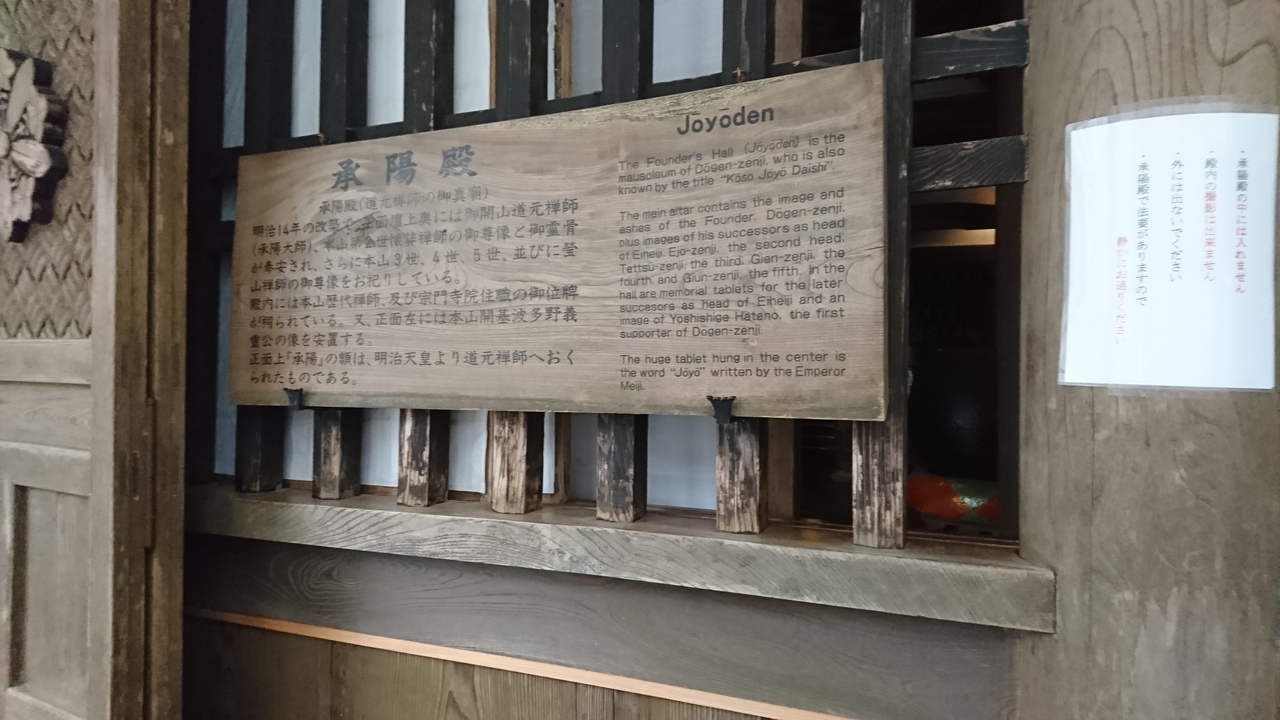 承陽殿
承陽殿(道元禅師の御真廟)
明治14年の改築で、正面壇上奥には御開山道元禅師
(承陽大師)、本山第2世懐弉禅師の御尊像と御霊骨
が奉安され、さらに本山3世、4世、5世、並びに瑩
山禅師の御尊像をお祀りしている。
殿内には本山歴代禅師、及び宗門寺院住職の御位牌
が祠られている。又、正面左には本山開基波多野義
重公の像を安置する。
正面上「承陽」の額は、明治天皇より道元禅師へおく
られたものである。
Joyōden
The Founder's Hall (Jōyōden) is the
mausoleum of Dōgen-zenji, who is also
known by the title "Kōso Jōyō Daishi".
The main altar contains the image and
ashes of the Founder, Dōgen-zenji,
plus images of his successors as head
of Eiheiji, Ejō-zenji, the second head;
Tettsū-zenji, the third, Gien-zenji, the
fourth, and Giun-zenji, the fifth. In the
hall are memorial tablets for the later
succesors as head of Eiheiji and an
image of Yoshishige Hatano, the first
supporter of Dōgen-zenji.
The huge tablet hung in the center is
the word "Jōyō" written by the Emperor
Meiji.
・承陽殿の中には入れません
殿内の撮影は出来ません
・外には出ないでください
・承陽殿で法要がありますので
静かにお通りください